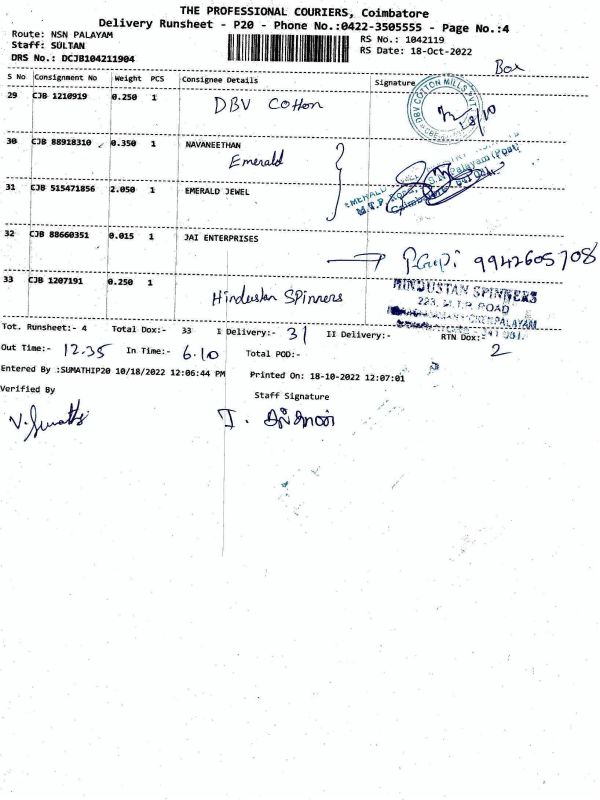 THE PROFESSIONAL COURIERS, Coimbatore
Delivery Runsheet - P20 - Phone No.:0422-3505555 - Page No.:4
Route: NSN PALAYAM
RS No.: 1042119
Staff: SULTAN
RS Date: 18-Oct-2022
DRS No.: DCJB104211904
Box
S No Consignment No Weight PCS Consignee Details Signature
29 CJB 1210919 0.250 1 DBV Cotton
DBV COTTON MILLS PVT
30 CJB 88928310 0.350 1 NAVANEETHAN
Emerald
31 CJB 515471856 2.050 1 EMERALD JEWEL
32 CJB 88660351 0.015 1 JAI ENTERPRISES
9942605708
33 CJB 1207191 0.250 1 Hindustan Spinners
HINDUSTAN SPINNERS
223, M.T.P. ROAD
Tot. Runsheet:- 4 Total Dox:- 33 I Delivery:- 31 II Delivery:- RTN Dox:- 2
Out Time:- 12.35 In Time:- 6.10 Total POD:-
Entered By :SUMATHIP20 10/18/2022 12:06:44 PM Printed On: 18-10-2022 12:07:01
Verified By Staff Signature
V. Sumathi